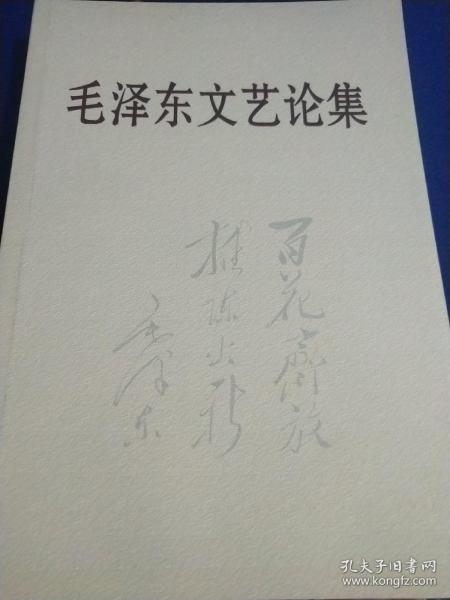 毛泽东文艺论集
百花齊放
推陈出新
毛泽东
孔夫子旧书网
www.kongfz.com